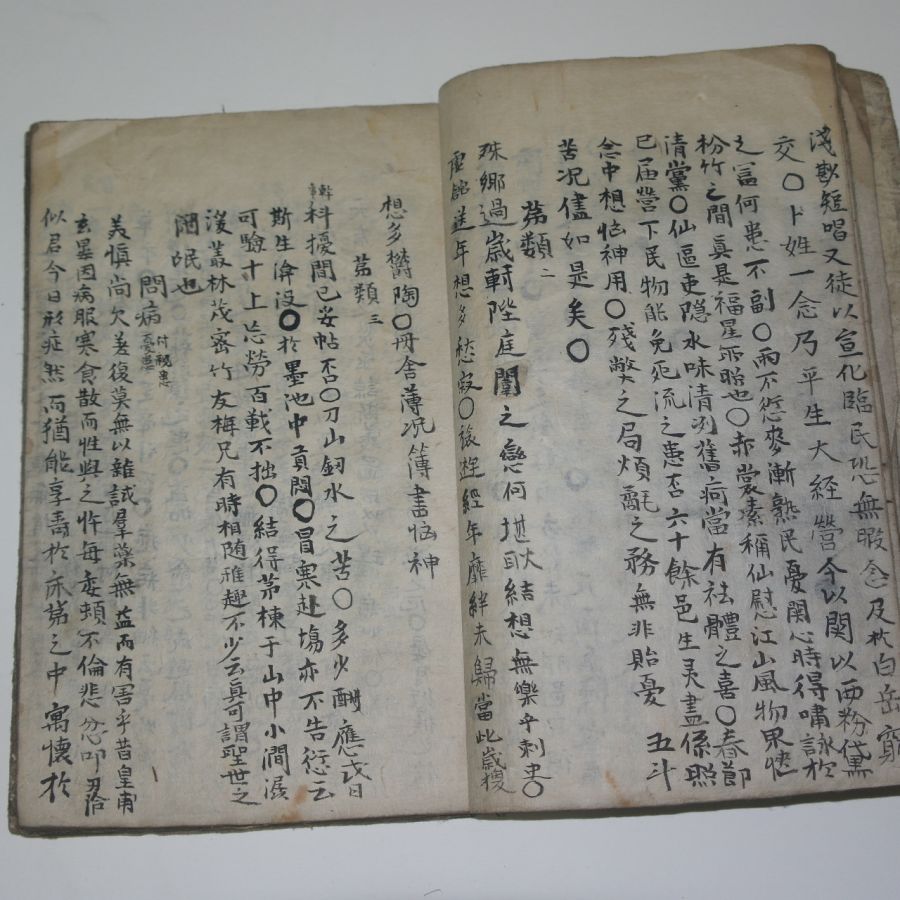 淺斟短唱又徒以宣化臨民恐無暇念及於白岳寶
交○卜姓一念乃平生大經營今以関以西粉黛
之富何患不副○雨不愆麥漸熟民憂関心時得嘯詠於
枌竹之間真是福星所照也○赤裳素稱仙慰江山風物果愜
清黨○仙區吏隱水味清冽舊疴當有祛體之喜○春節
已届營下民物能免死流之患否六十餘邑生灵盡係照
念中想惱神用○殘弊之局煩氄之務無非貽憂 五斗
苦况儘如是矣○
第類二
殊鄉過歲軒陛庭闈之戀何堪耿結想無樂乎刺史○
虛館送年想多愁寂○旅遊經年靡絆未歸當此歲
想多欝陶○冊舍薄况簿書惱神
第類三
科擾間已妥帖否○刀山釼水之苦○多少酬應或日
斯生渰沒○於墨池中貢悶○冒寒赴塲亦不告愆云
可驗十上忘勞百載不拙○結得茅棟于山中小澗潺
湲叢林茂密竹友梅兄有時相随雅趣不少云真可謂聖世之
閒氓也
問病 付親患 憂患
美愼尚欠差復莫無以雜試羣藥無益而有害乎昔皇甫
玄晏因病服寒食散而性與之忤每委頓不倫悲忿叩刃
似君今日形症然而猶能享壽於床第之中寓懷於